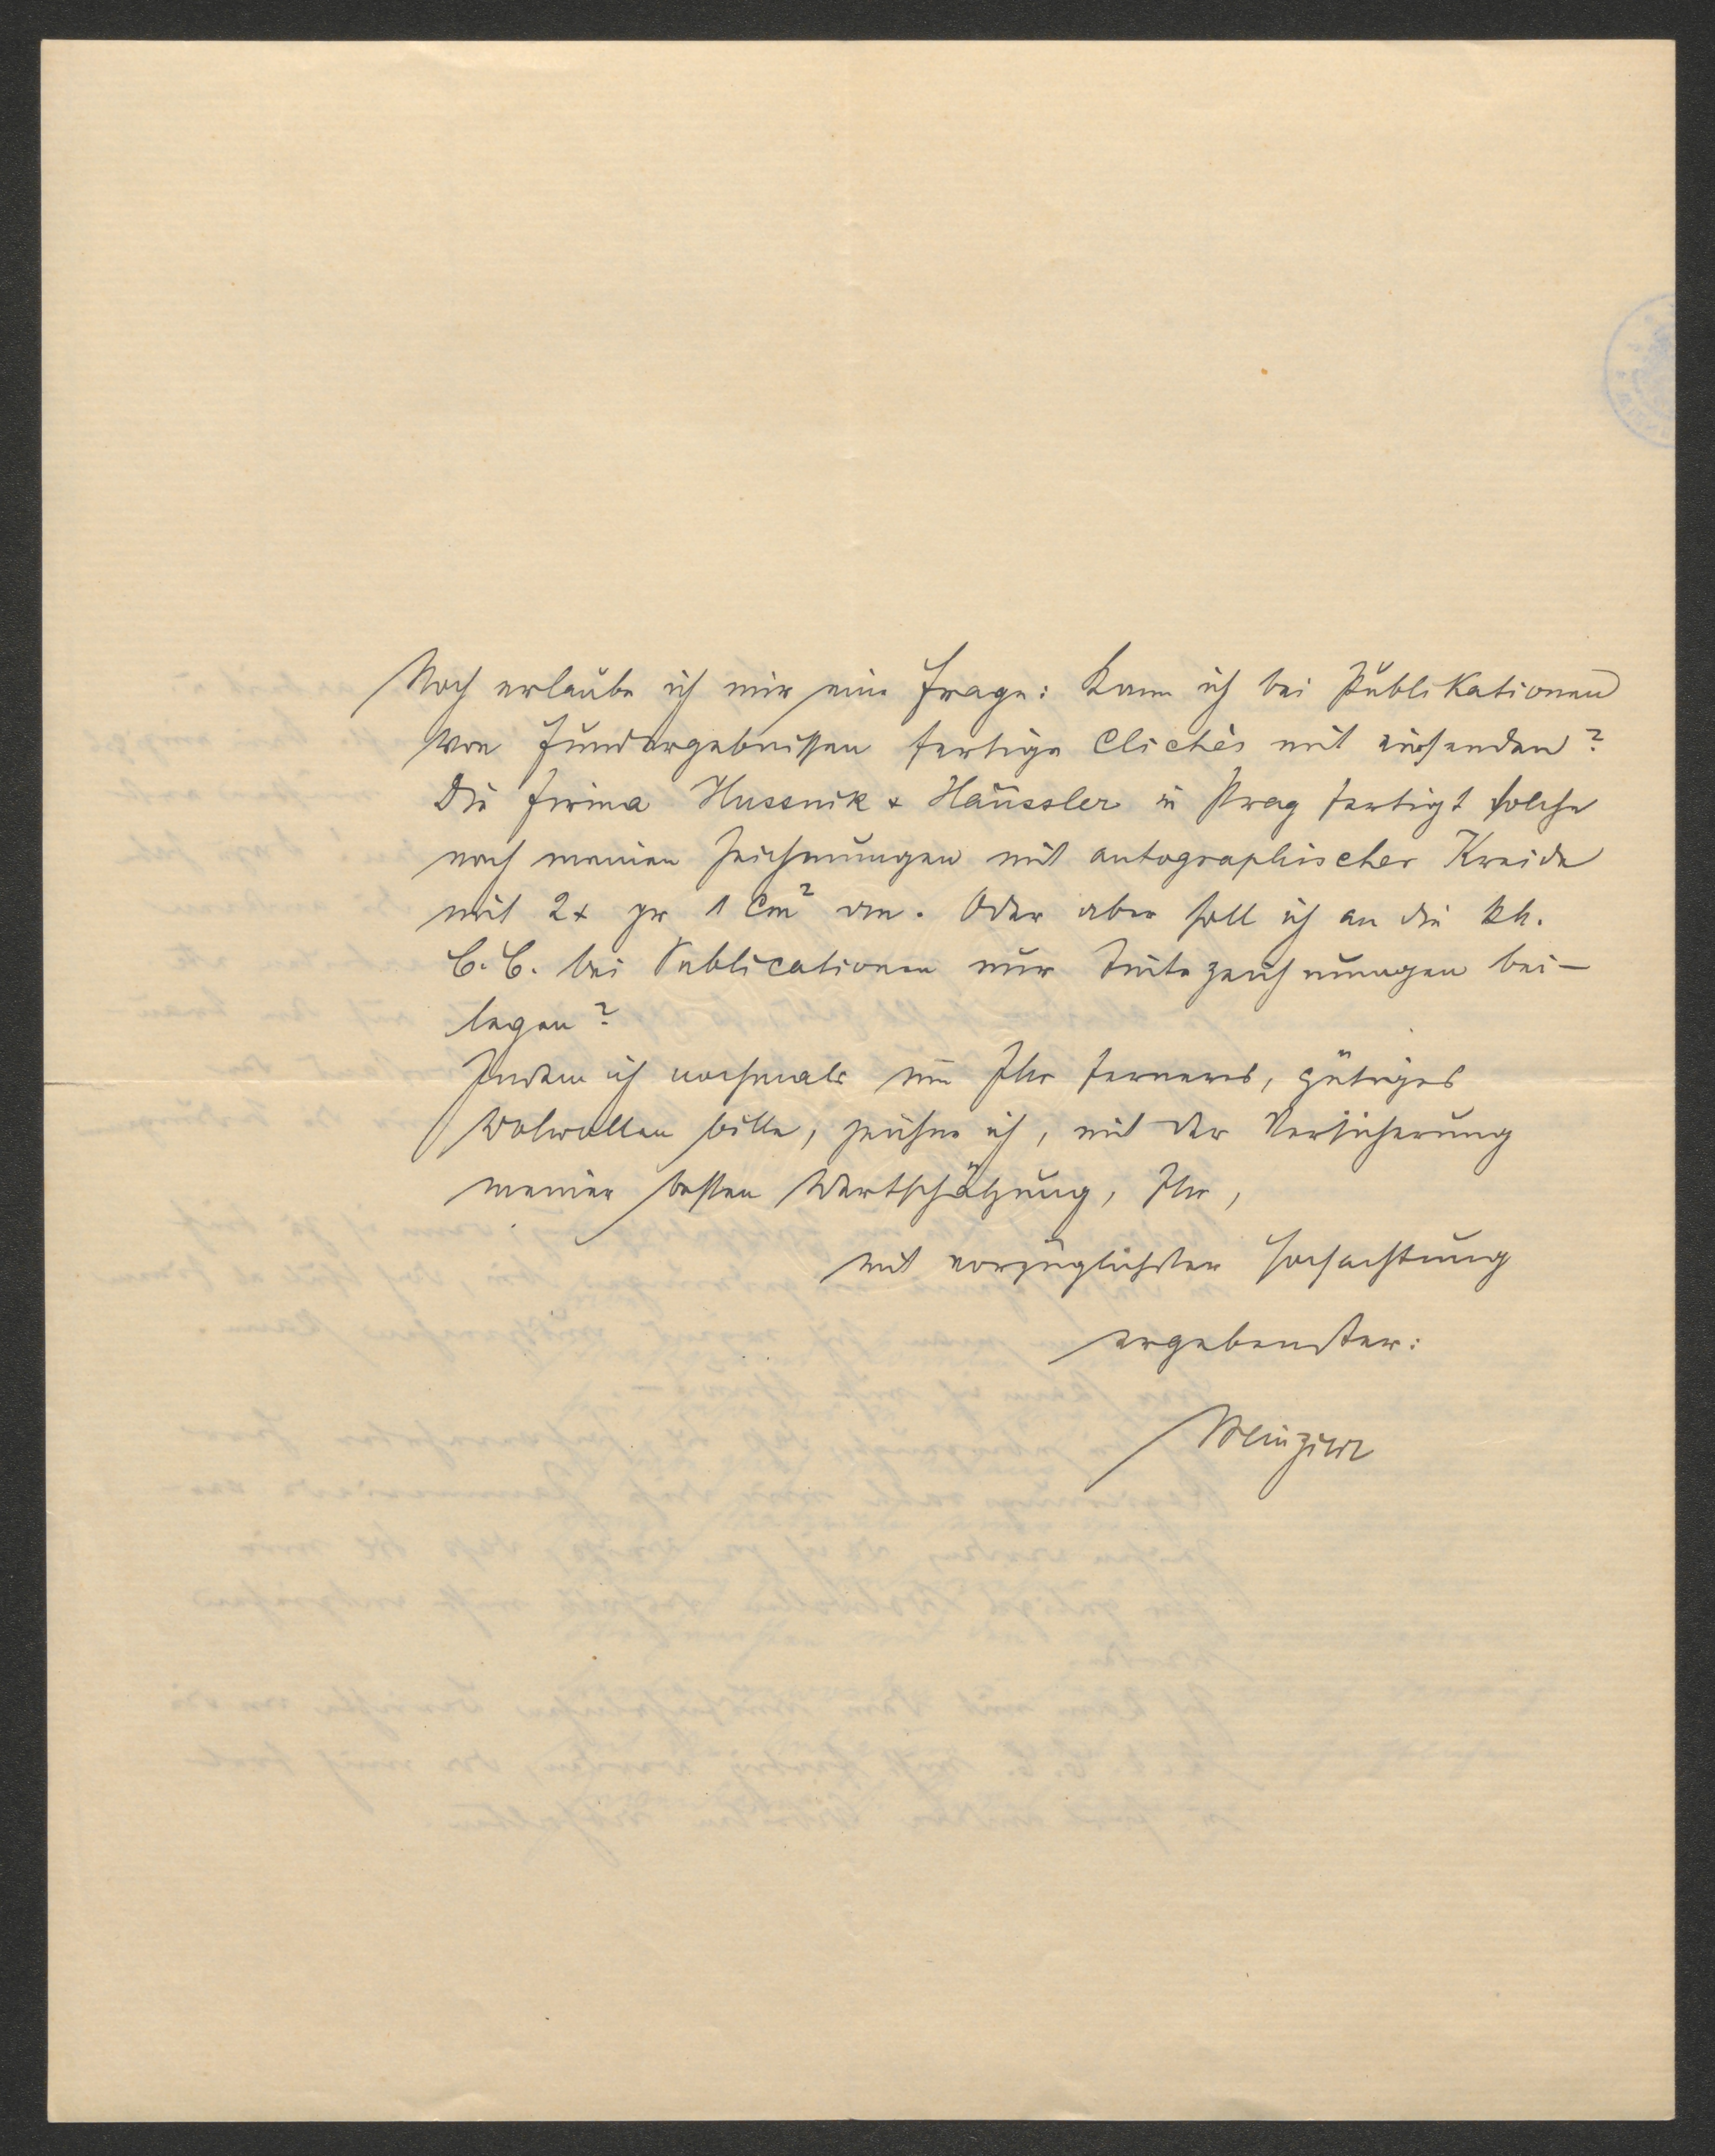 Noch erlaube ich mir eine Frage: Kann ich bei Publikationen
von Fundergebnissen fertige Clichès mit einsenden?
Die Firma Hussnik & Häussler in Prag fertigt solche
nach meinen Zeichnungen mit autographischer Kreide
mit 2x pr 1 Cm² an. Oder aber soll ich an die kk.
C. C. bei Publicationen nur Tuschzeichnungen bei-
legen?
Indem ich nochmals um Ihr ferneres, gütiges
Wolwollen bitte, zeichne ich, mit der Versicherung
meiner besten Wertschätzung, Ihr,
mit vorzüglichster Hochachtung
ergebenster:
Weinzierl